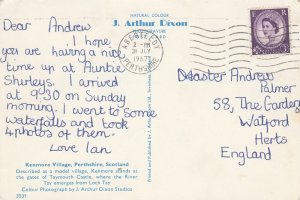 NATURAL COLOUR
J. Arthur Dixon
PHOTOGRAVURE
Dear Andrew
I hope
you are having a nice
time up at Auntie
Shirleys. I arrived
at 9.30 on Sunday
morning. I went to some
waterfalls and took
4 photos of them.
Love Ian
ABERFELDY
2 - PM
1967
PERTHSHIRE
Master Andrew
Palmer
58, The Gardens
Watford
Herts
England
Kenmore Village, Perthshire, Scotland
Described as a model village, Kenmore stands at
the gates of Taymouth Castle, where the River
Tay emerges from Loch Tay
Colour Photograph by J. Arthur Dixon Studios
3531